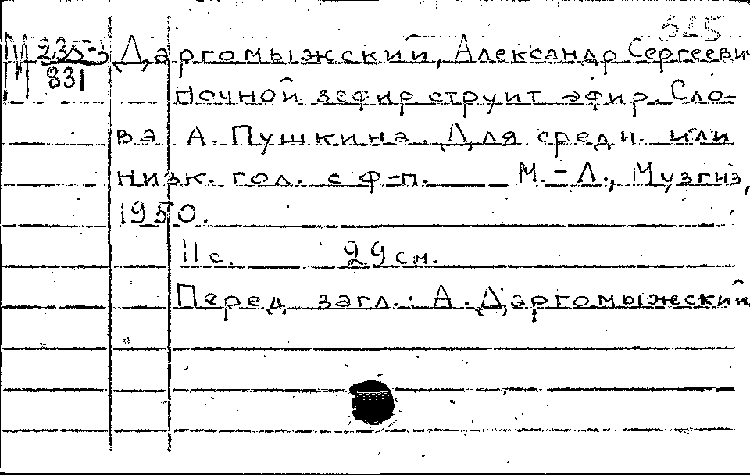 515
М 235-3 Даргомыжский, Александр Сергееви
831
Ночной зефир струит эфир. Сло-
ва А. Пушкина. Для средн. или
низк. гол. с ф-п. М.-Л., Музгиз,
1950.
11 с. 29 см.
Перед загл.: А. Даргомыжский